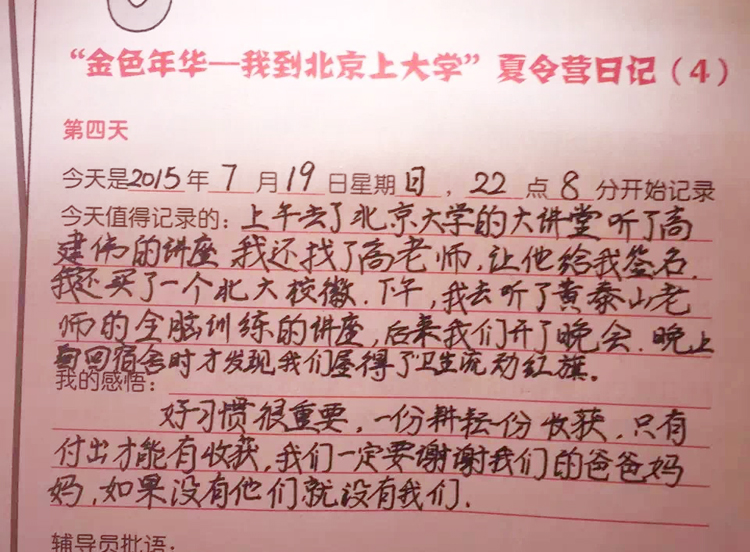 “金色年华—我到北京上大学”夏令营日记（4）
第四天
今天是2015年7月19日星期日，22点8分开始记录
今天值得记录的：上午去了北京大学的大讲堂听了高
建伟的讲座 我还找了高老师，让他给我签名．
我还买了一个北大校徽．下午，我去听了黄泰山老
师的全脑训练的讲座，后来我们开了晚会．晚上
回宿舍时才发现我们屋得了卫生流动红旗。
我的感悟：
好习惯很重要，一份耕耘一份收获，只有
付出才能有收获，我们一定要谢谢我们的爸爸妈
妈，如果没有他们就没有我们．
辅导员批语：